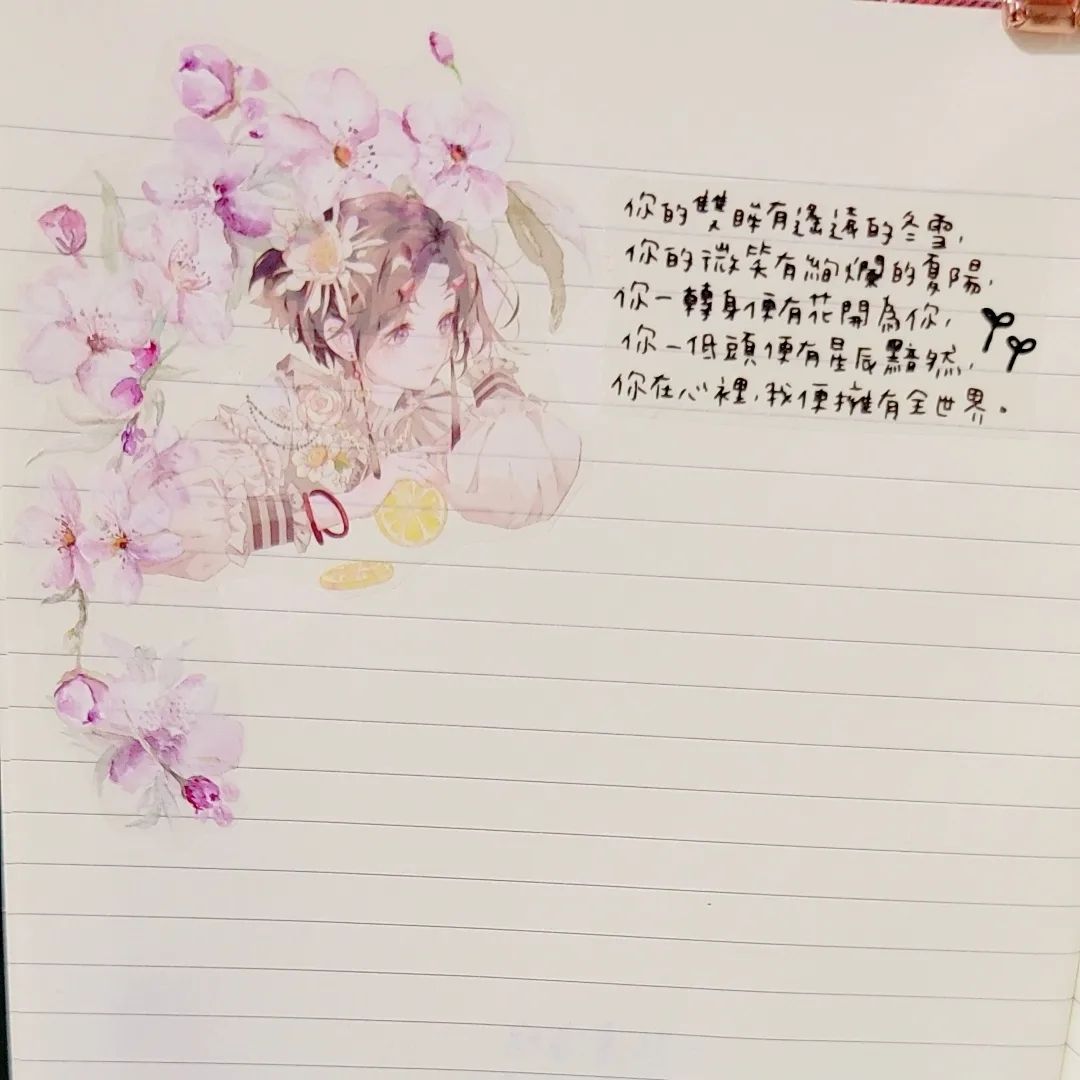 你的雙眸有遙遠的冬雪，
你的微笑有絢爛的夏陽，
你一轉身便有花開為你，
你一低頭便有星辰黯然，
你在心裡，我便擁有全世界。